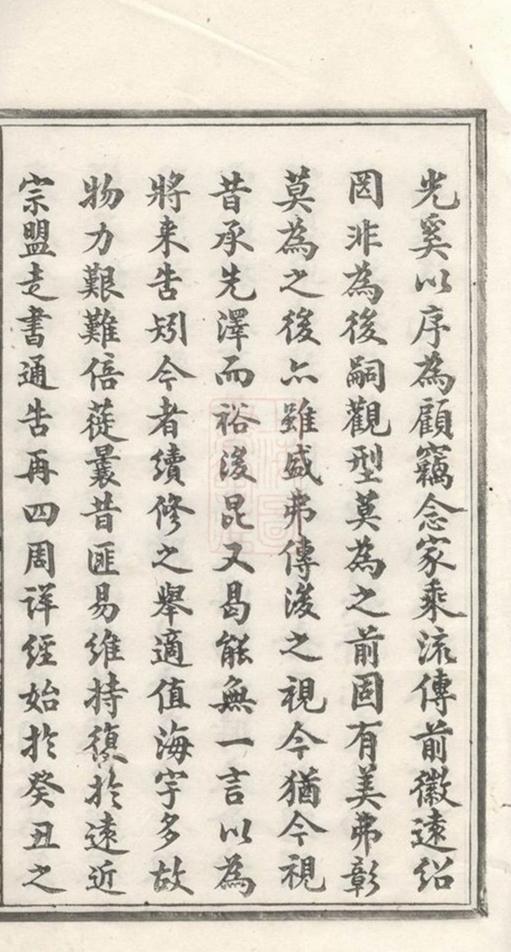 光奚以序為顧竊念家乘流傳前徽遠紹
罔非為後嗣觀型莫為之前固有美弗彰
莫為之後亦雖盛弗傳後之視今猶今視
昔承先澤而裕後昆又曷能無一言以為
將来告矧今者續修之舉適值海宇多故
物力艱難倍蓰曩昔匪易維持復於遠近
宗盟走書通告再四周詳經始於癸丑之